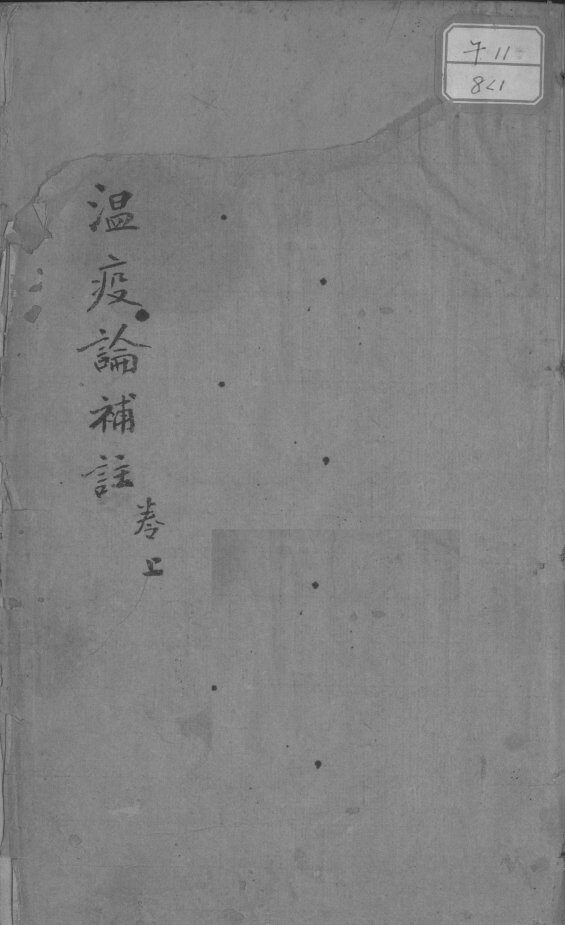 温疫論補註
卷上
子11
821